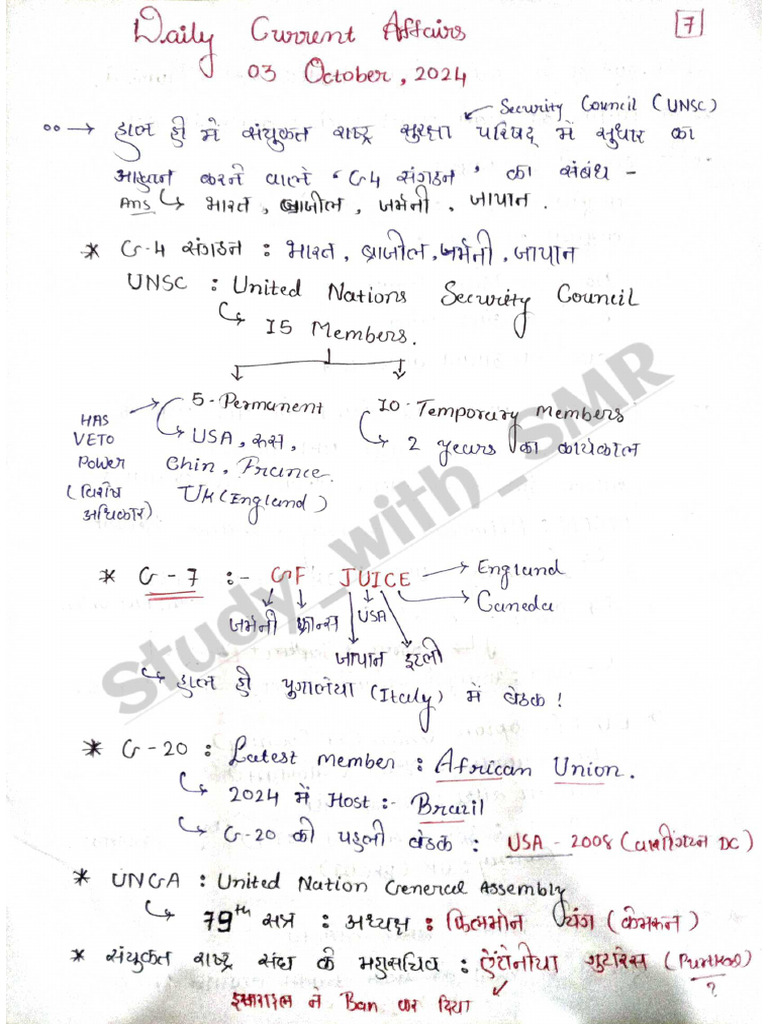 Daily Current Affairs
7
03 October, 2024
Security Council (UNSC)
हाल ही में संयुक्त राष्ट्र सुरक्षा परिषद् में सुधार का
आह्वान करने वाले 'G4 संगठन' का संबंध -
Ans भारत, ब्राजील, जर्मनी, जापान.
* G-4 संगठन : भारत, ब्राजील, जर्मनी, जापान
UNSC : United Nations Security Council
15 Members.
5-Permanent 10-Temporary Members
HAS VETO Power (विशेष अधिकार)
USA, रूस, 2 years का कार्यकाल
Chin, France
UK (England)
* G-7 :- GF JUICE England
Caneda
जर्मनी फ्रान्स USA
जापान इटली
हाल ही पुगालिया (Italy) में बैठक!
* G-20 : Latest member : African Union.
2024 में Host :- Brazil
G-20 की पहली बैठक : USA - 2008 (वाशिंगटन DC)
* UNGA : United Nation General Assembly
79th सत्र : अध्यक्ष : फिलमोन यंग (केमरून)
* संयुक्त राष्ट्र संघ के महासचिव : ऐंटोनीयो गुटरेस
?
इसराइल ने Ban कर दिया
Study_with_SMR